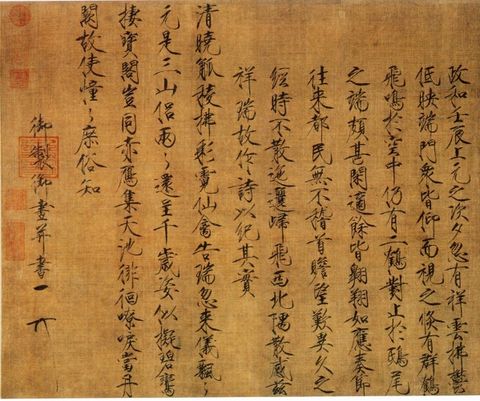 政和壬辰上元之次夕忽有祥雲拂鬱
低映端門眾皆仰而視之倏有群鶴
飛鳴於空中仍有二鶴對止於鴟尾
之端頗甚閑適餘皆翱翔如應奏節
往來都民無不稽首瞻望歎異久之
經時不散迤邐歸飛西北隅散感茲
祥瑞故作詩以紀其實
清曉觚稜拂彩霓仙禽告瑞忽來儀飄〻
元是三山侶兩〻還呈千歲姿似擬碧鸞
棲寶閣豈同赤鴈集天池徘徊嘹唳當丹
闕故使憧〻庶俗知
御製御畫并書